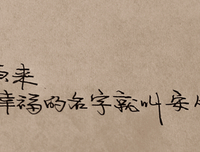 来
幸福的名字就叫安